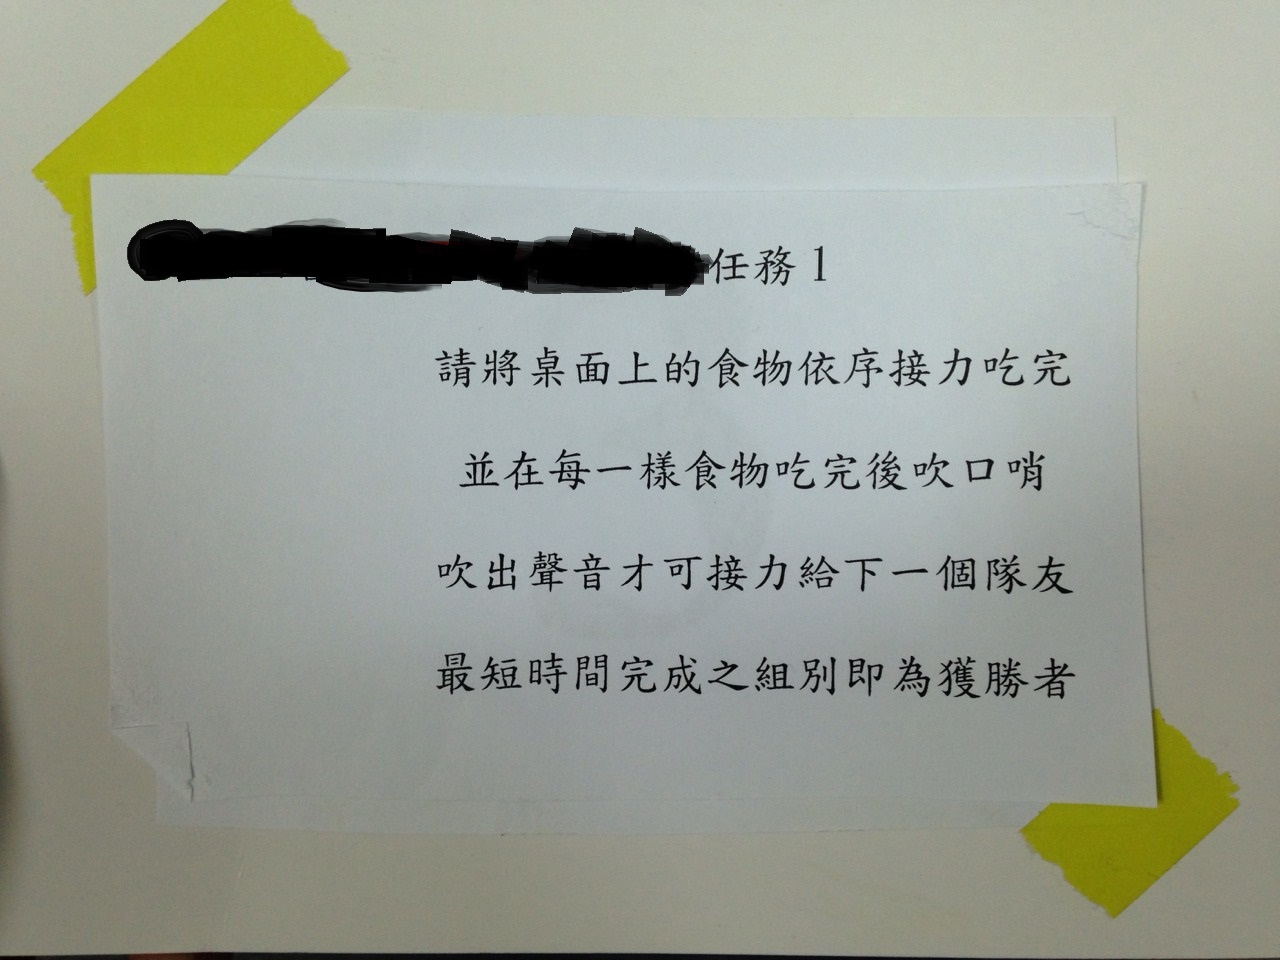 任務1
請將桌面上的食物依序接力吃完
並在每一樣食物吃完後吹口哨
吹出聲音才可接力給下一個隊友
最短時間完成之組別即為獲勝者